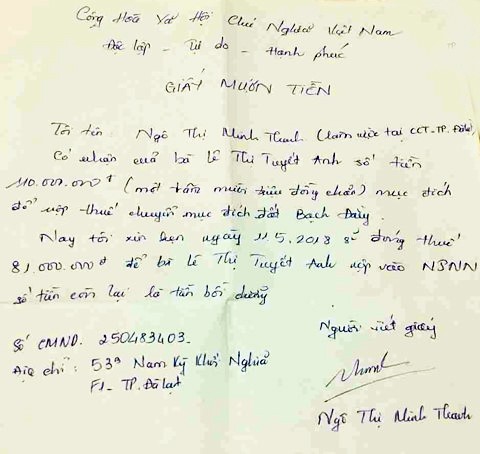 Cộng Hoà Xã Hội Chủ Nghĩa Việt Nam
Độc lập - Tự do - Hạnh phúc
GIẤY MƯỢN TIỀN
Tôi tên Ngô Thị Minh Thanh (làm việc tại CCT-TP.Đàlạt)
Có nhận của bà Lê Thị Tuyết Anh số tiền
110.000.000đ (một trăm mười triệu đồng chẵn) mục đích
để nộp thuế chuyển mục đích đất Bạch Đằng.
Nay tôi xin hẹn ngày 11.5.2018 sẽ đóng thuế
81.000.000đ để bà Lê Thị Tuyết Anh nộp vào NSNN
số tiền còn lại là tiền bồi dưỡng
Số CMND. 250483403.
Địa chỉ: 53a Nam Kỳ Khởi Nghĩa
F1- TP. Đà lạt
Người viết giấy
Ngô Thị Minh Thanh